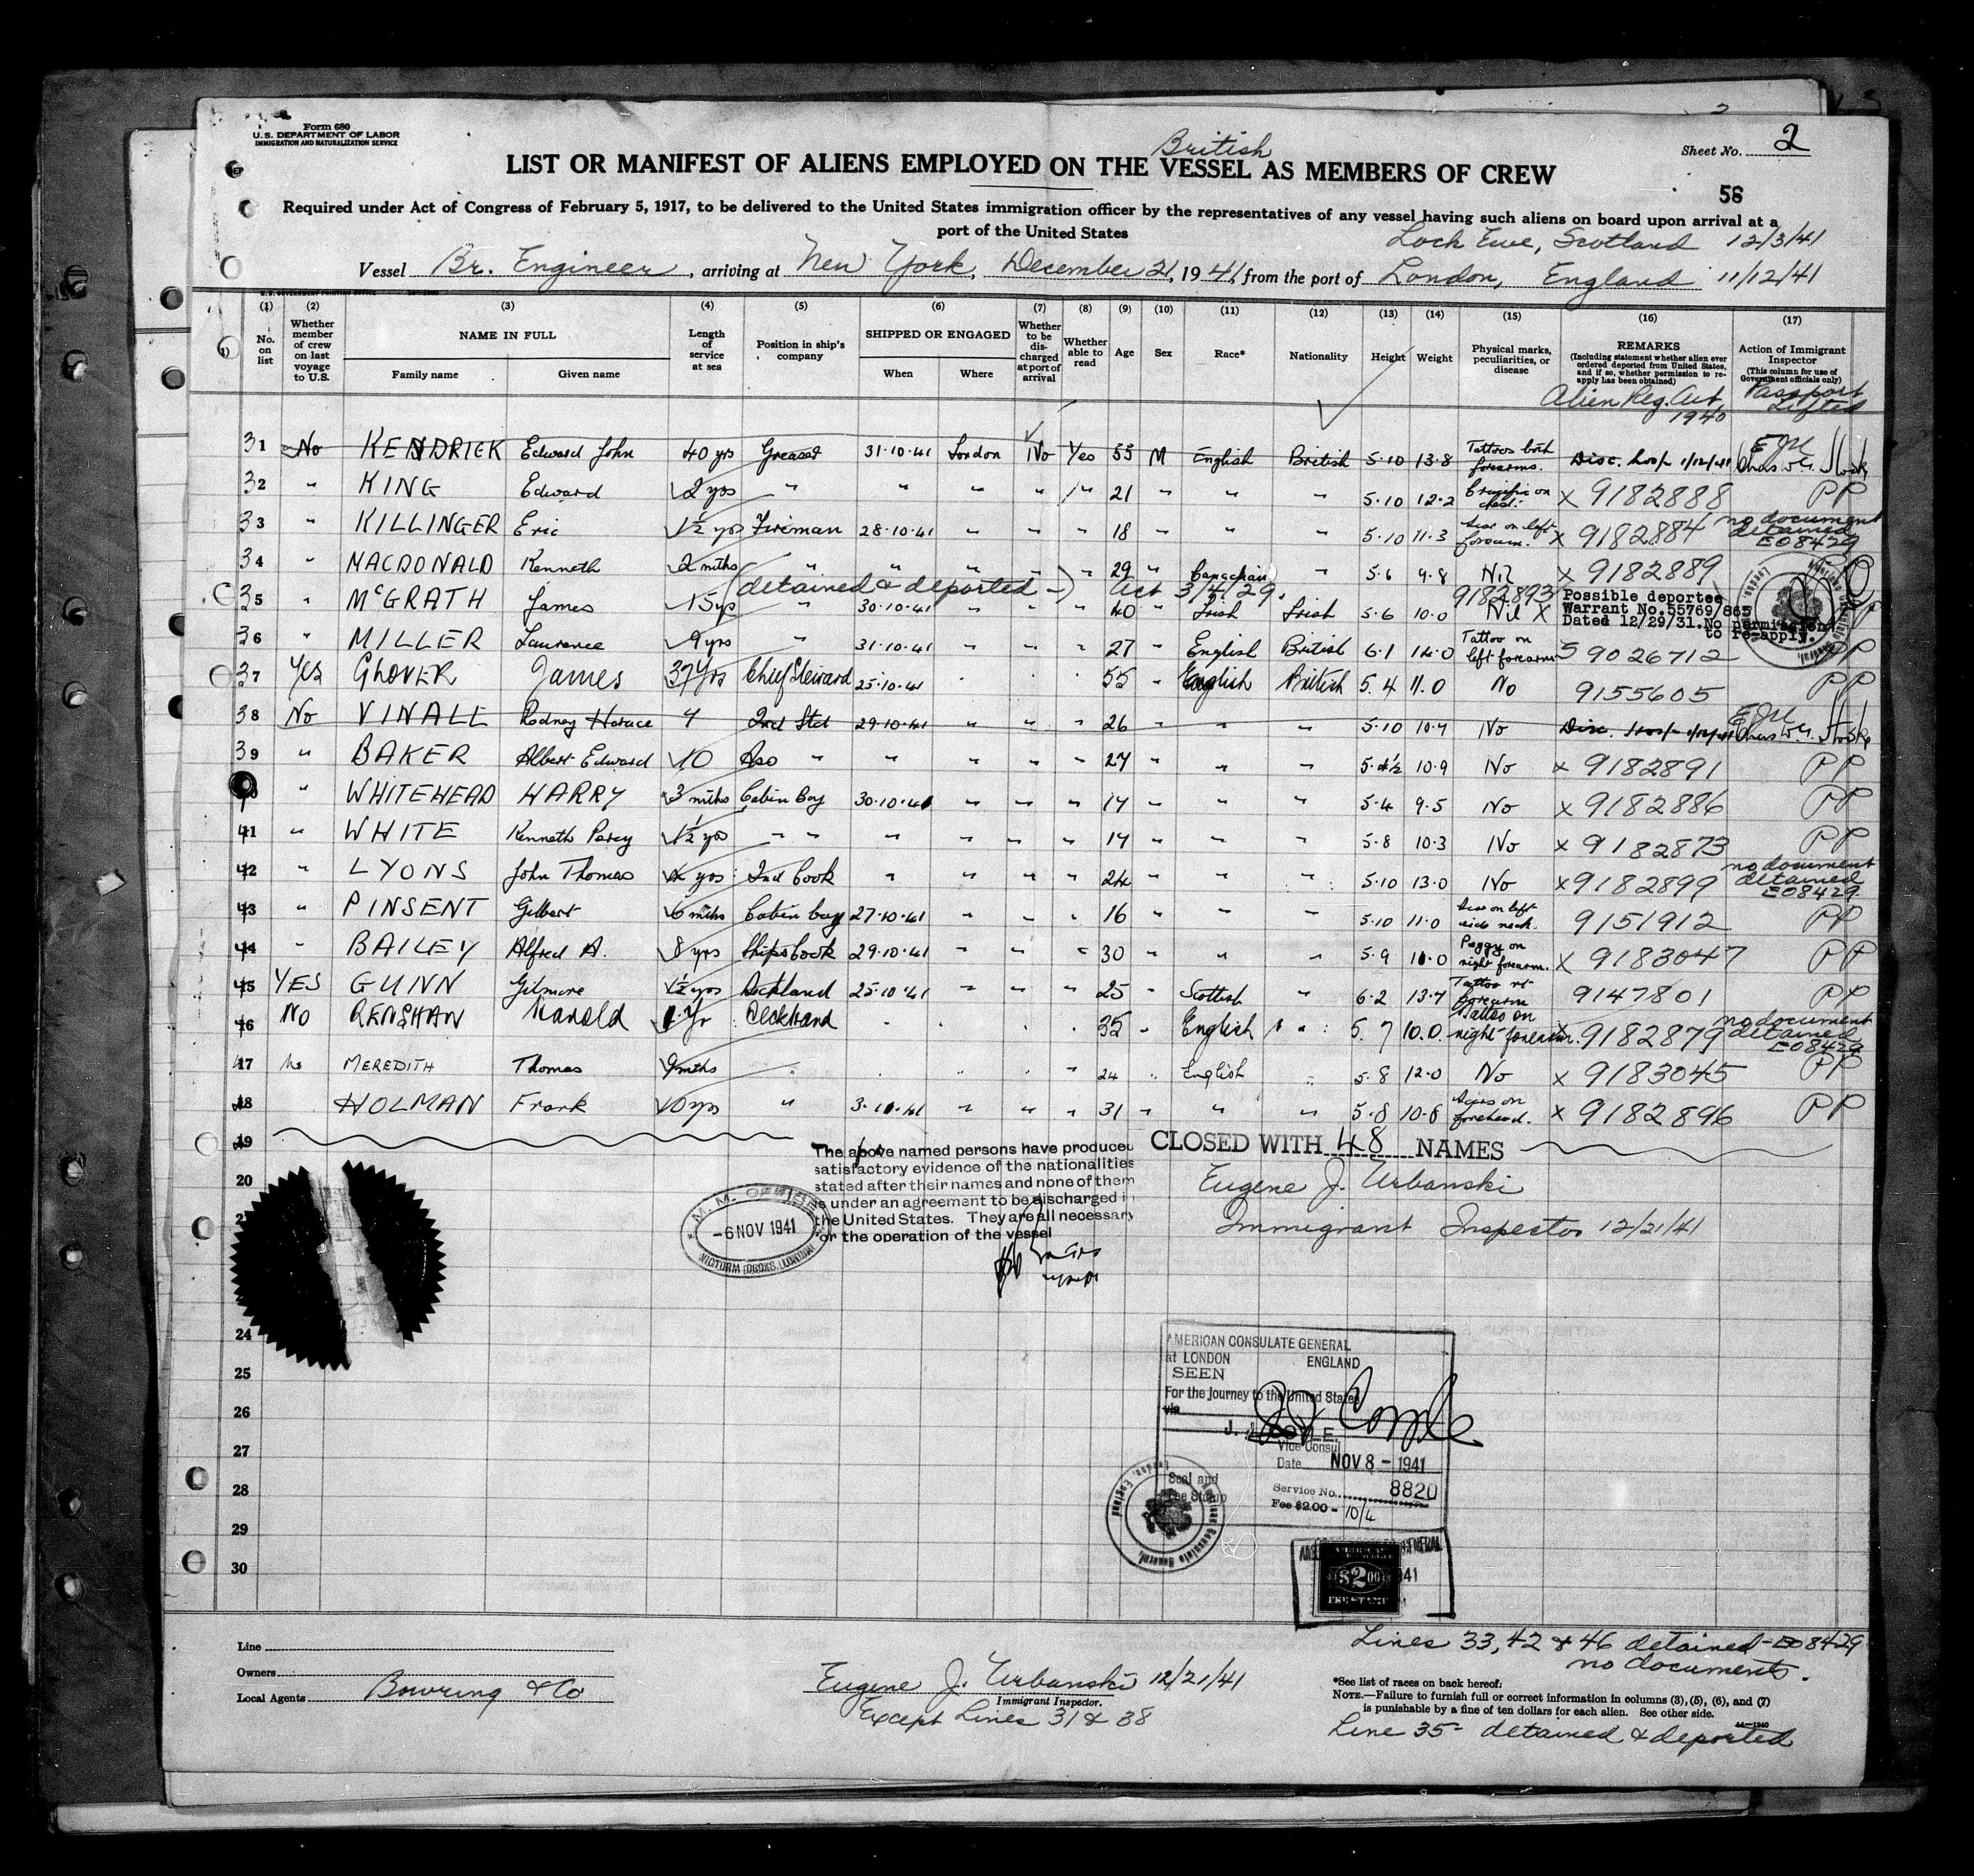 Form 680
U.S. DEPARTMENT OF LABOR
IMMIGRATION AND NATURALIZATION SERVICE
Sheet No. 2
British
LIST OR MANIFEST OF ALIENS EMPLOYED ON THE VESSEL AS MEMBERS OF CREW
56
Required under Act of Congress of February 5, 1917, to be delivered to the United States immigration officer by the representatives of any vessel having such aliens on board upon arrival at a
port of the United States
Lock Ewe, Scotland 12/3/41
Vessel Br. Engineer, arriving at New York, December 21, 1941, from the port of London, England 11/12/41
(1) (2) (3) (4) (5) (6) (7) (8) (9) (10) (11) (12) (13) (14) (15) (16) (17)
No. on list
Whether member of crew on last voyage to U.S.
NAME IN FULL
Family name Given name
Length of service at sea
Position in ship's company
SHIPPED OR ENGAGED
When Where
Whether to be discharged at port of arrival
Whether able to read
Age
Sex
Race*
Nationality
Height
Weight
Physical marks, peculiarities, or disease
REMARKS
(Including statement whether alien ever ordered deported from United States, and if so, whether permission to re-apply has been obtained)
Action of Immigrant Inspector
(This column for use of Government officials only)
Alien Reg. Act 1940
Passport Lifted
31 No KENDRICK Edward John 40 yrs Greaser 31·10·41 London No Yes 55 M English British 5·10 13·8 Tattoos both forearms. Disc. hosp 1/12/41 EJU
32 " KING Edward 2 yrs " " " " " 21 " " " 5·10 12·2 Crucifix on chest. X 9182888 PP
33 " KILLINGER Eric 1½ yrs Fireman 28·10·41 " " " 18 " " " 5·10 11·3 Scar on left forearm. X 9182884 no document detained E08429
34 " MACDONALD Kenneth 2 mths " " " " " 29 " Canadian " 5·6 9·8 Nil X 9182889 PP
(detained & deported -) Act 3/4/29. 9182893
35 " McGRATH James 15 yrs " 30·10·41 " " " 40 " Irish Irish 5·6 10·0 Nil X Possible deportee Warrant No. 55769/865 Dated 12/29/31. No permission to re-apply. PP
36 " MILLER Laurence 9 yrs " 31·10·41 " " " 27 " English British 6·1 14·0 Tattoo on left forearm 9026712 PP
37 Yes GLOVER James 37 Yrs Chief Steward 25·10·41 55 " English British 5.4 11.0 No 9155605 PP
38 No VINALL Rodney Horace 4 2nd Std 29·10·41 " " " 26 " " " 5·10 10·7 No Disc. Hosp EJU
39 " BAKER Albert Edward 10 Aso " " " " " 27 " " " 5·4½ 10·9 No X 9182891 PP
40 " WHITEHEAD HARRY 3 mths Cabin Boy 30·10·41 " " " 17 " " " 5·4 9·5 No X 9182886 PP
41 " WHITE Kenneth Percy 1½ yrs " " " " " " 17 " " " 5·8 10·3 No X 9182873 PP
42 " LYONS John Thomas yrs 2nd Cook " " " " 24 " " " 5·10 13·0 No X 9182899 no document detained E08429
43 " PINSENT Gilbert 6 mths Cabin boy 27·10·41 " " " 16 " " " 5·10 11·0 Scar on left side neck. 9151912 PP
44 " BAILEY Alfred A. 8 yrs Ships Cook 29·10·41 " " " 30 " " " 5·9 11·0 Peggy on right forearm. X 9183047 PP
45 YES GUNN Gilmore 1½ yrs Deckhand 25·10·41 " " " 25 " Scottish " 6·2 13·7 Tattoo rt forearm 9147801 PP
46 No RENSHAW Harold 1 Yr Deckhand 35 " English " 5.7 10.0. Tattoo on right forearm. 9182879 no document detained E08429
47 No MEREDITH Thomas 9 mths " 24 " English " 5·8 12·0 No X 9183045 PP
48 HOLMAN Frank 10 yrs " 3·11·41 " " " 31 " " " 5·8 10·8 Scars on forehead. X 9182896 PP
19
CLOSED WITH 48 NAMES
The above named persons have produced
satisfactory evidence of the nationalities
stated after their names and none of them
is under an agreement to be discharged in
the United States. They are all necessary
for the operation of the vessel
M. M. OFFICE
-6 NOV 1941
VICTORIA DOCKS, LONDON
Eugene J. Urbanski
Immigrant Inspector 12/21/41
20
24
25
26
27
28
29
30
AMERICAN CONSULATE GENERAL
at LONDON ENGLAND
SEEN
For the journey to the United States
via
J. J. COYLE.
Vice Consul
Date NOV 8 - 1941
Service No. 8820
Fee $2.00 - 10/4
Seal and Fee Stamp
American Consulate General, London, England
$2.00
FEE STAMP
Line
Owners
Local Agents Bowring & Co
Eugene J. Urbanski 12/21/41
Immigrant Inspector.
Except Lines 31 & 38
Lines 33, 42 & 46 detained - E08429
no documents.
*See list of races on back hereof.
NOTE.—Failure to furnish full or correct information in columns (3), (5), (6), and (7)
is punishable by a fine of ten dollars for each alien. See other side.
Line 35- detained & deported